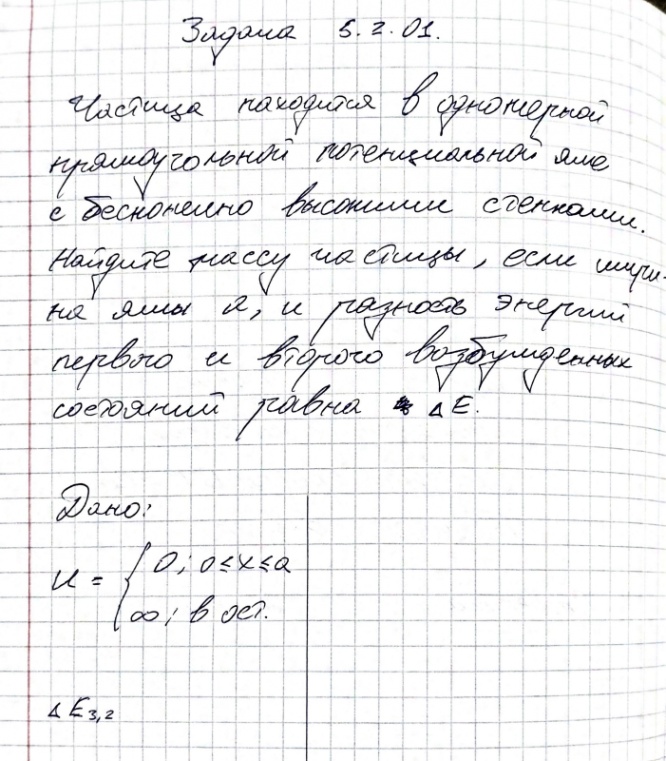 Задача 5.2.01.
Частица находится в одномерной
прямоугольной потенциальной яме
с бесконечно высокими стенками.
Найдите массу частицы, если шири-
на ямы a, и разность энергий
первого и второго возбужденных
состояний равна ΔE.
Дано:
U = { 0; 0≤x≤a
∞; в ост.
ΔE3,2